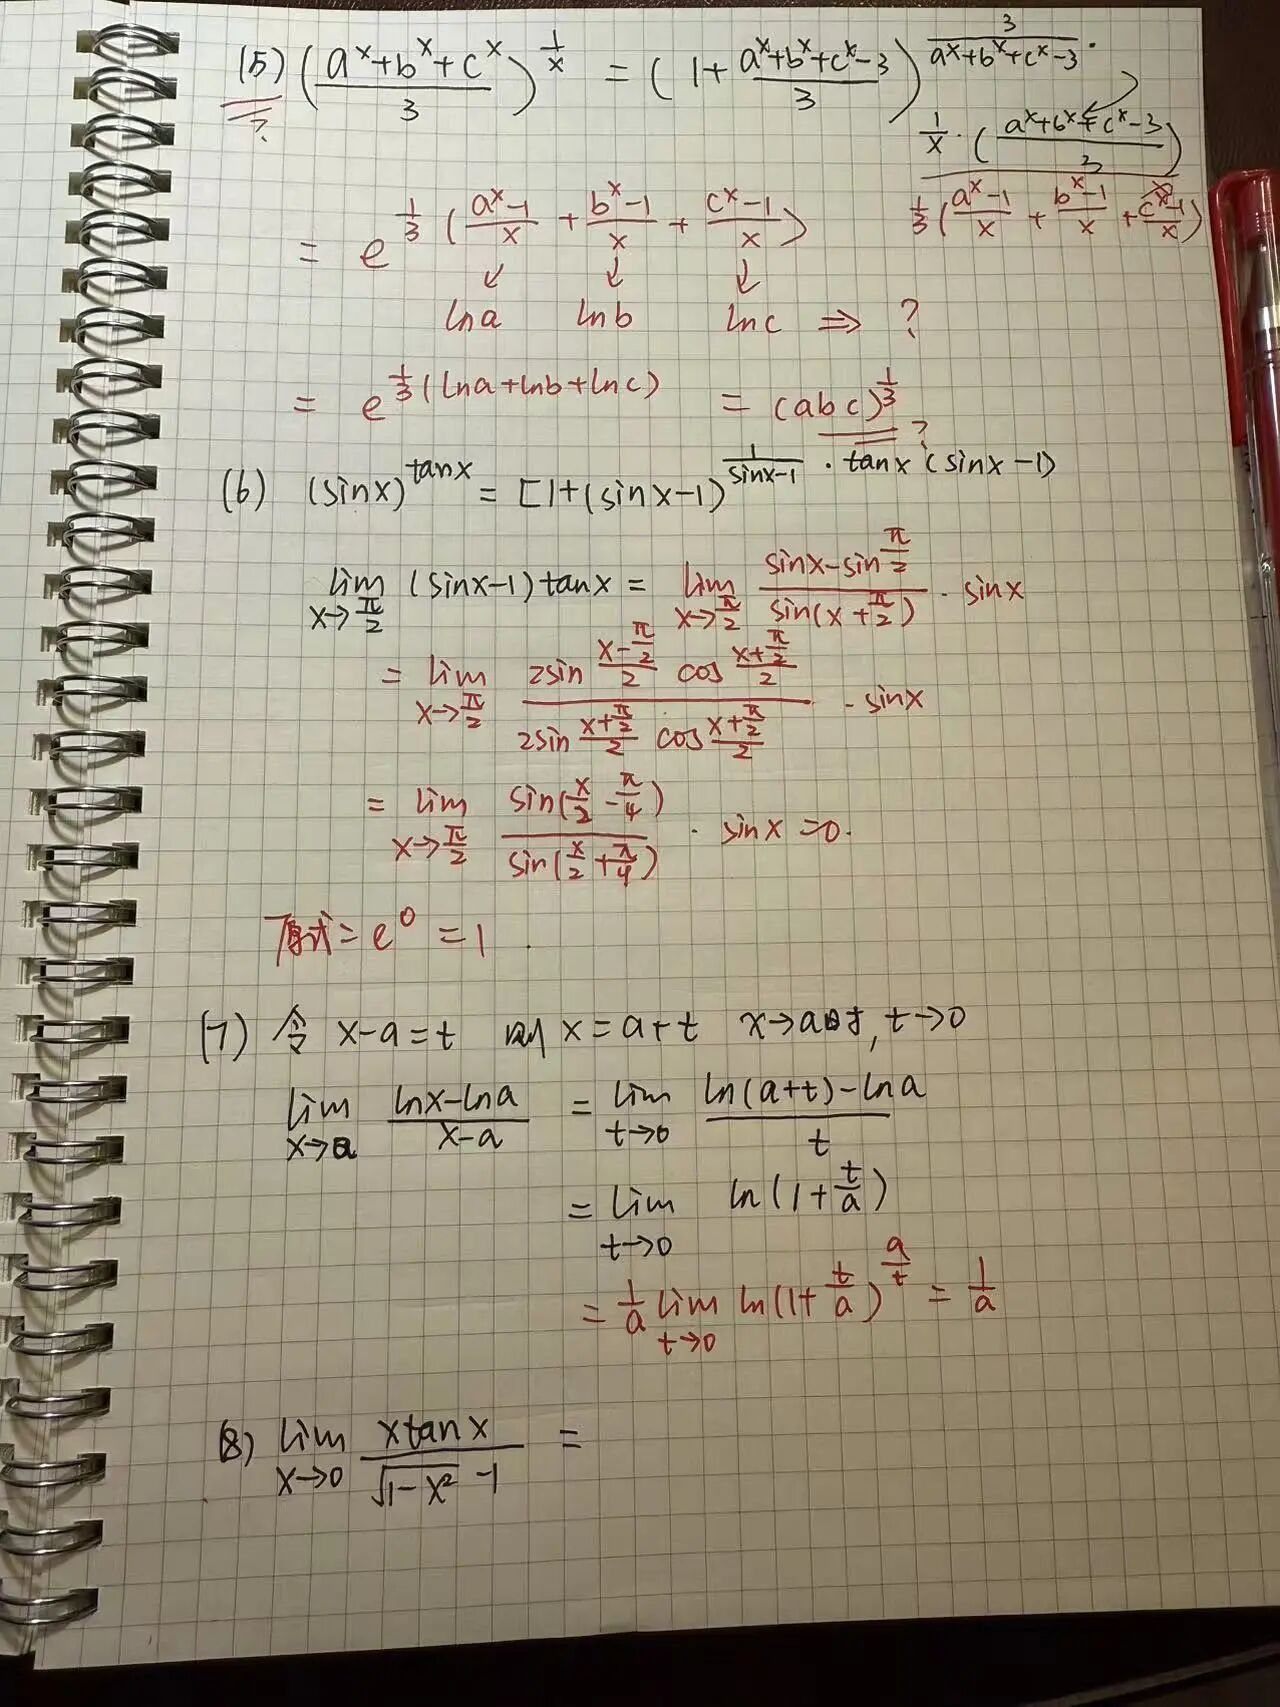 (5) ((a^x+b^x+c^x)/3)^(1/x) = (1+(a^x+b^x+c^x-3)/3)^(3/(a^x+b^x+c^x-3)) ·
?
1/x · ((a^x+b^x+c^x-3)/3)
= e^(1/3((a^x-1)/x + (b^x-1)/x + (c^x-1)/x)) 1/3((a^x-1)/x + (b^x-1)/x + (c^x-1)/x)
↙ ↓ ↓
lna lnb lnc ⇒ ?
= e^(1/3(lna+lnb+lnc)) = (abc)^(1/3) ?
(6) (sinx)^tanx = [1+(sinx-1)^(1/(sinx-1) · tanx(sinx-1))
lim x→π/2 (sinx-1)tanx = lim x→π/2 (sinx-sinπ/2)/(sin(x+π/2)) · sinx
= lim x→π/2 (2sin (x-π/2)/2 cos (x+π/2)/2)/(2sin (x+π/2)/2 cos (x+π/2)/2) · sinx
= lim x→π/2 sin(x/2-π/4)/sin(x/2+π/4) · sinx =0.
原式=e^0=1.
(7) 令 x-a=t 则 x=a+t x→a时, t→0
lim x→a (lnx-lna)/(x-a) = lim t→0 (ln(a+t)-lna)/t
= lim t→0 ln(1+t/a)
= 1/a lim t→0 ln(1+t/a)^(a/t) = 1/a
(8) lim x→0 xtanx/(√(1-x²) -1) =